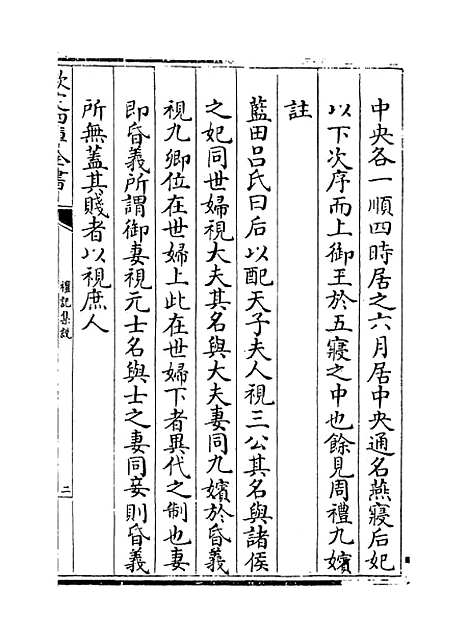 中央各一順四時居之六月居中央通名燕寢后妃
以下次序而上御王於五寢之中也餘見周禮九嬪
註
藍田呂氏曰后以配天子夫人視三公其名與諸侯
之妃同世婦視大夫其名與大夫妻同九嬪於昏義
視九卿位在世婦上此在世婦下者異代之制也妻
即昏義所謂御妻視元士名與士之妻同妾則昏義
所無蓋其賤者以視庶人
欽定四庫全書
禮記集說
二